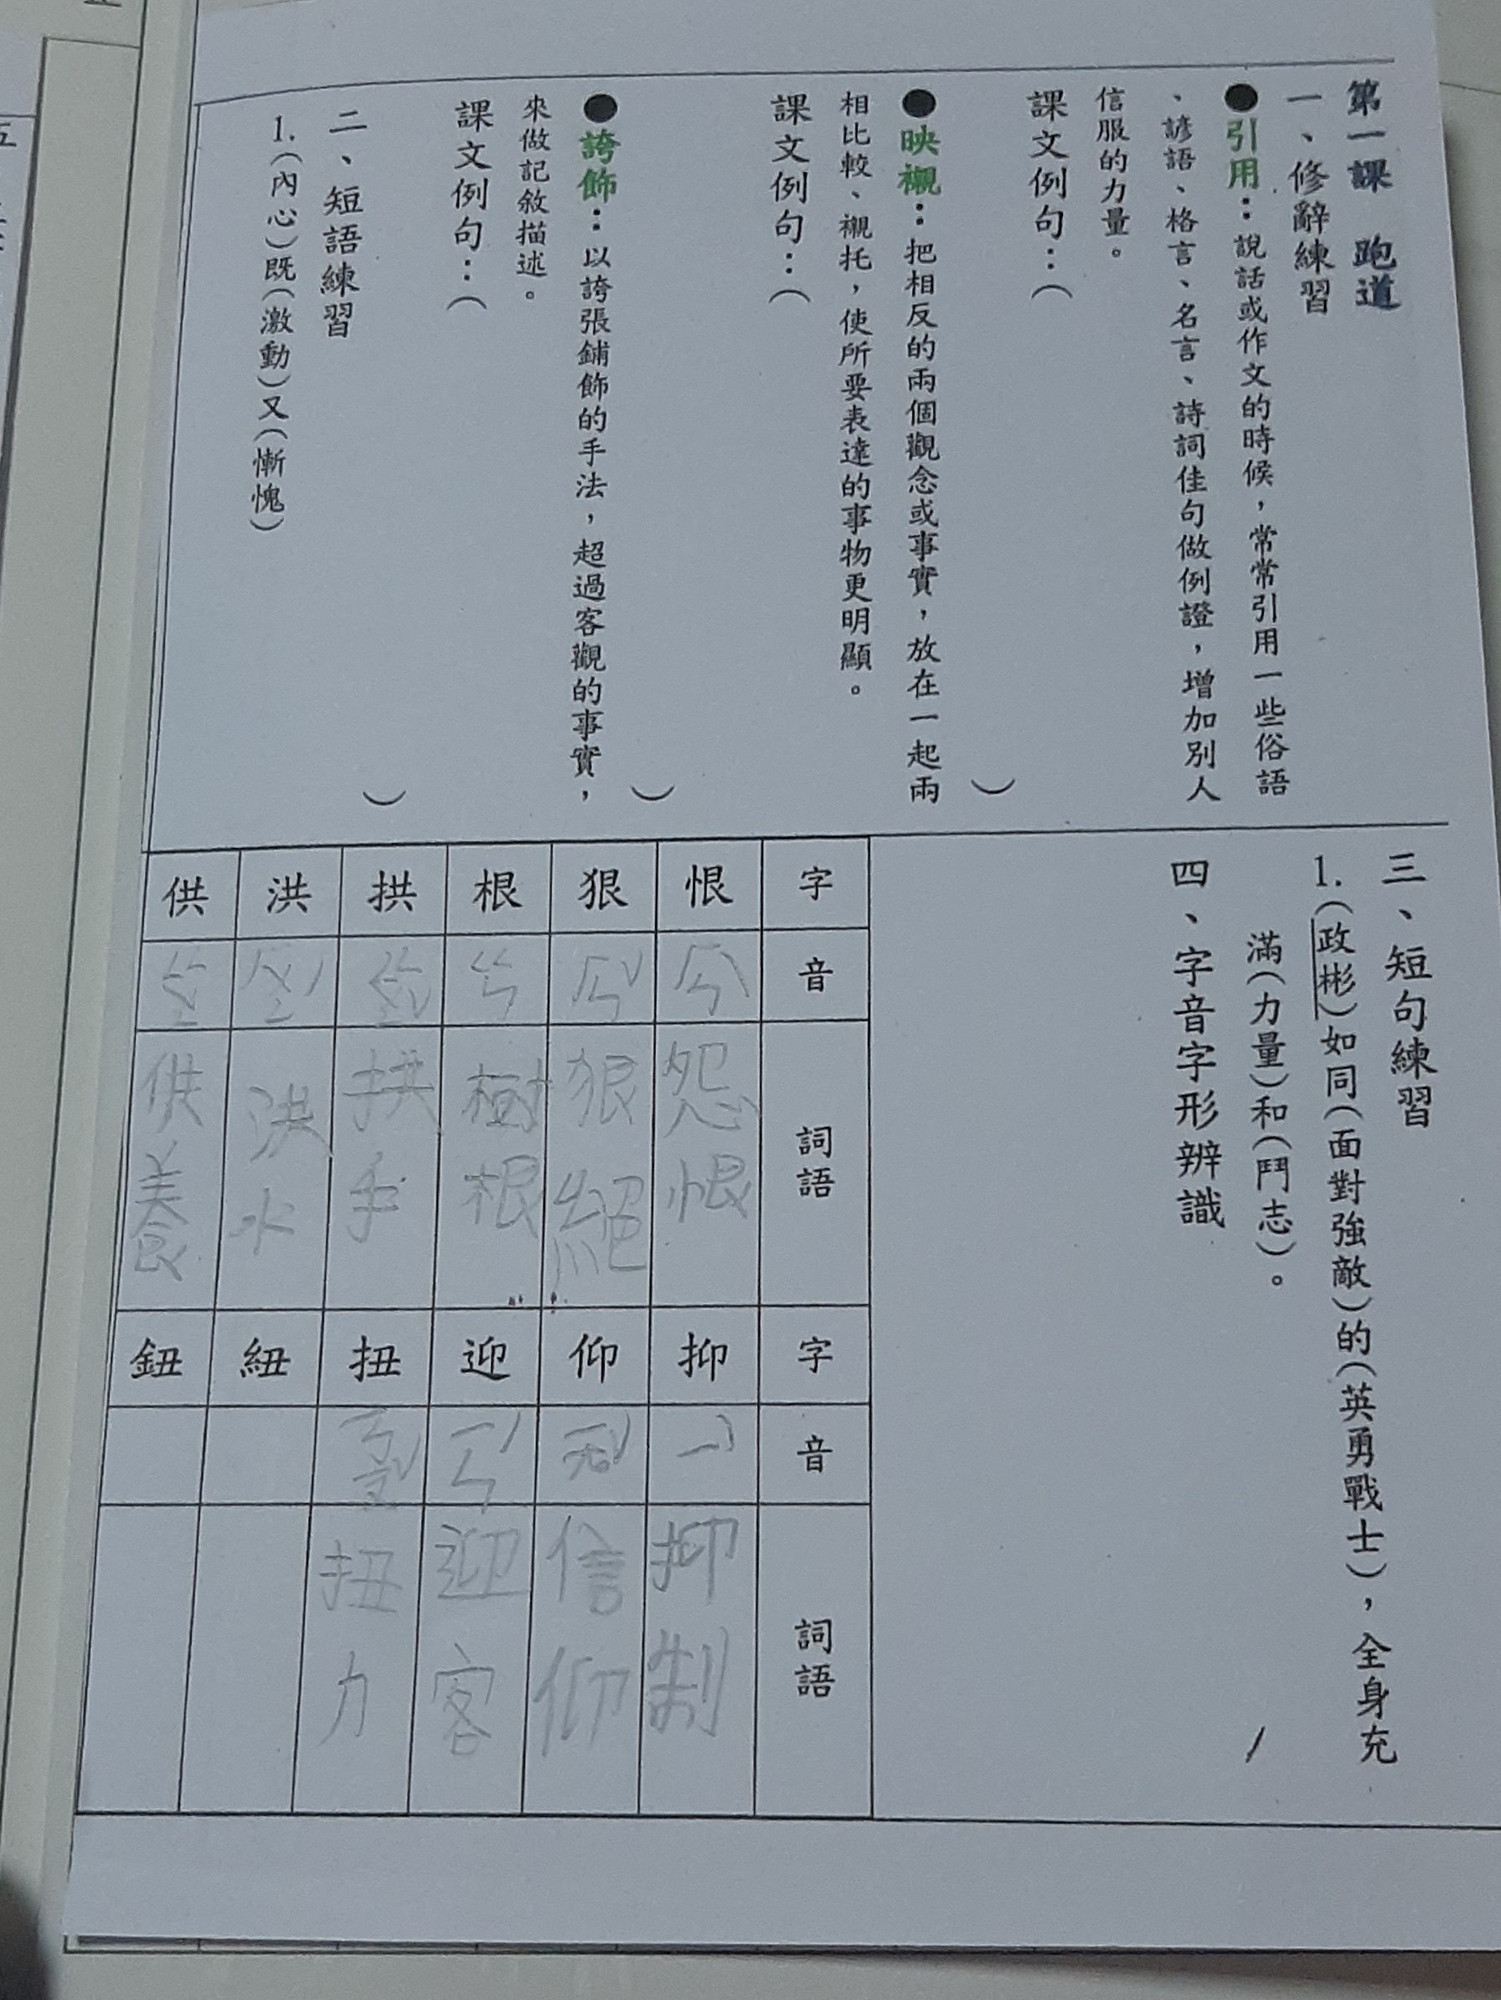 第一課　跑道
一、修辭練習
●引用：說話或作文的時候，常常引用一些俗語
、諺語、格言、名言、詩詞佳句做例證，增加別人
信服的力量。
課文例句：（
）
●映襯：把相反的兩個觀念或事實，放在一起兩
相比較、襯托，使所要表達的事物更明顯。
課文例句：（
）
●誇飾：以誇張鋪飾的手法，超過客觀的事實，
來做記敘描述。
課文例句：（
）
二、短語練習
1.（內心）既（激動）又（慚愧）
三、短句練習
1.（政彬）如同（面對強敵）的（英勇戰士），全身充
滿（力量）和（鬥志）。
四、字音字形辨識
字 音 詞語 字 音 詞語
恨 ㄏㄣˋ 怨恨 抑 ㄧˋ 抑制
狠 ㄏㄣˇ 狠絕 仰 ㄧㄤˇ 信仰
根 ㄍㄣ 樹根 迎 ㄧㄥˊ 迎客
拱 ㄍㄨㄥˇ 拱手 扭 ㄋㄧㄡˇ 扭力
洪 ㄏㄨㄥˊ 洪水 紐
供 ㄍㄨㄥ 供養 鈕